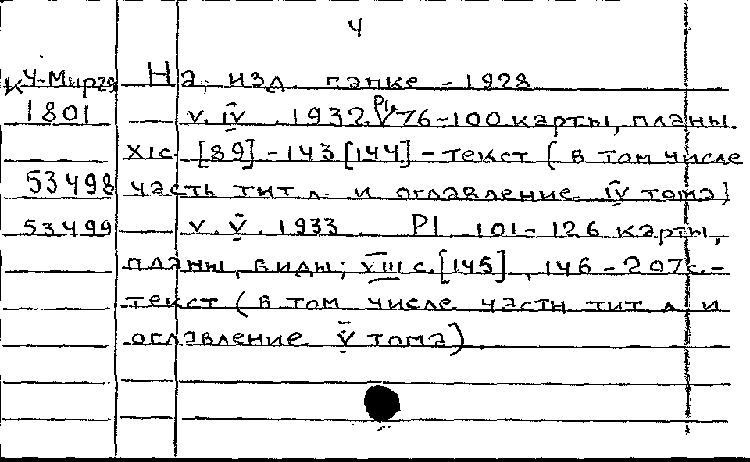 4
К Ч-Мирза На. изд. папке - 1928
1801 v. IV . 1932. Pl. 76-100 карты, планы.
XI с [89] - 143 [144] - текст ( в том числе
53498 часть тит л. и оглавление IV тома)
53499 v. V . 1933 Pl 101-126 карты,
планы, виды; VIII с. [145] , 146 - 207 с. -
текст ( в том числе часть тит л и
оглавление V тома).